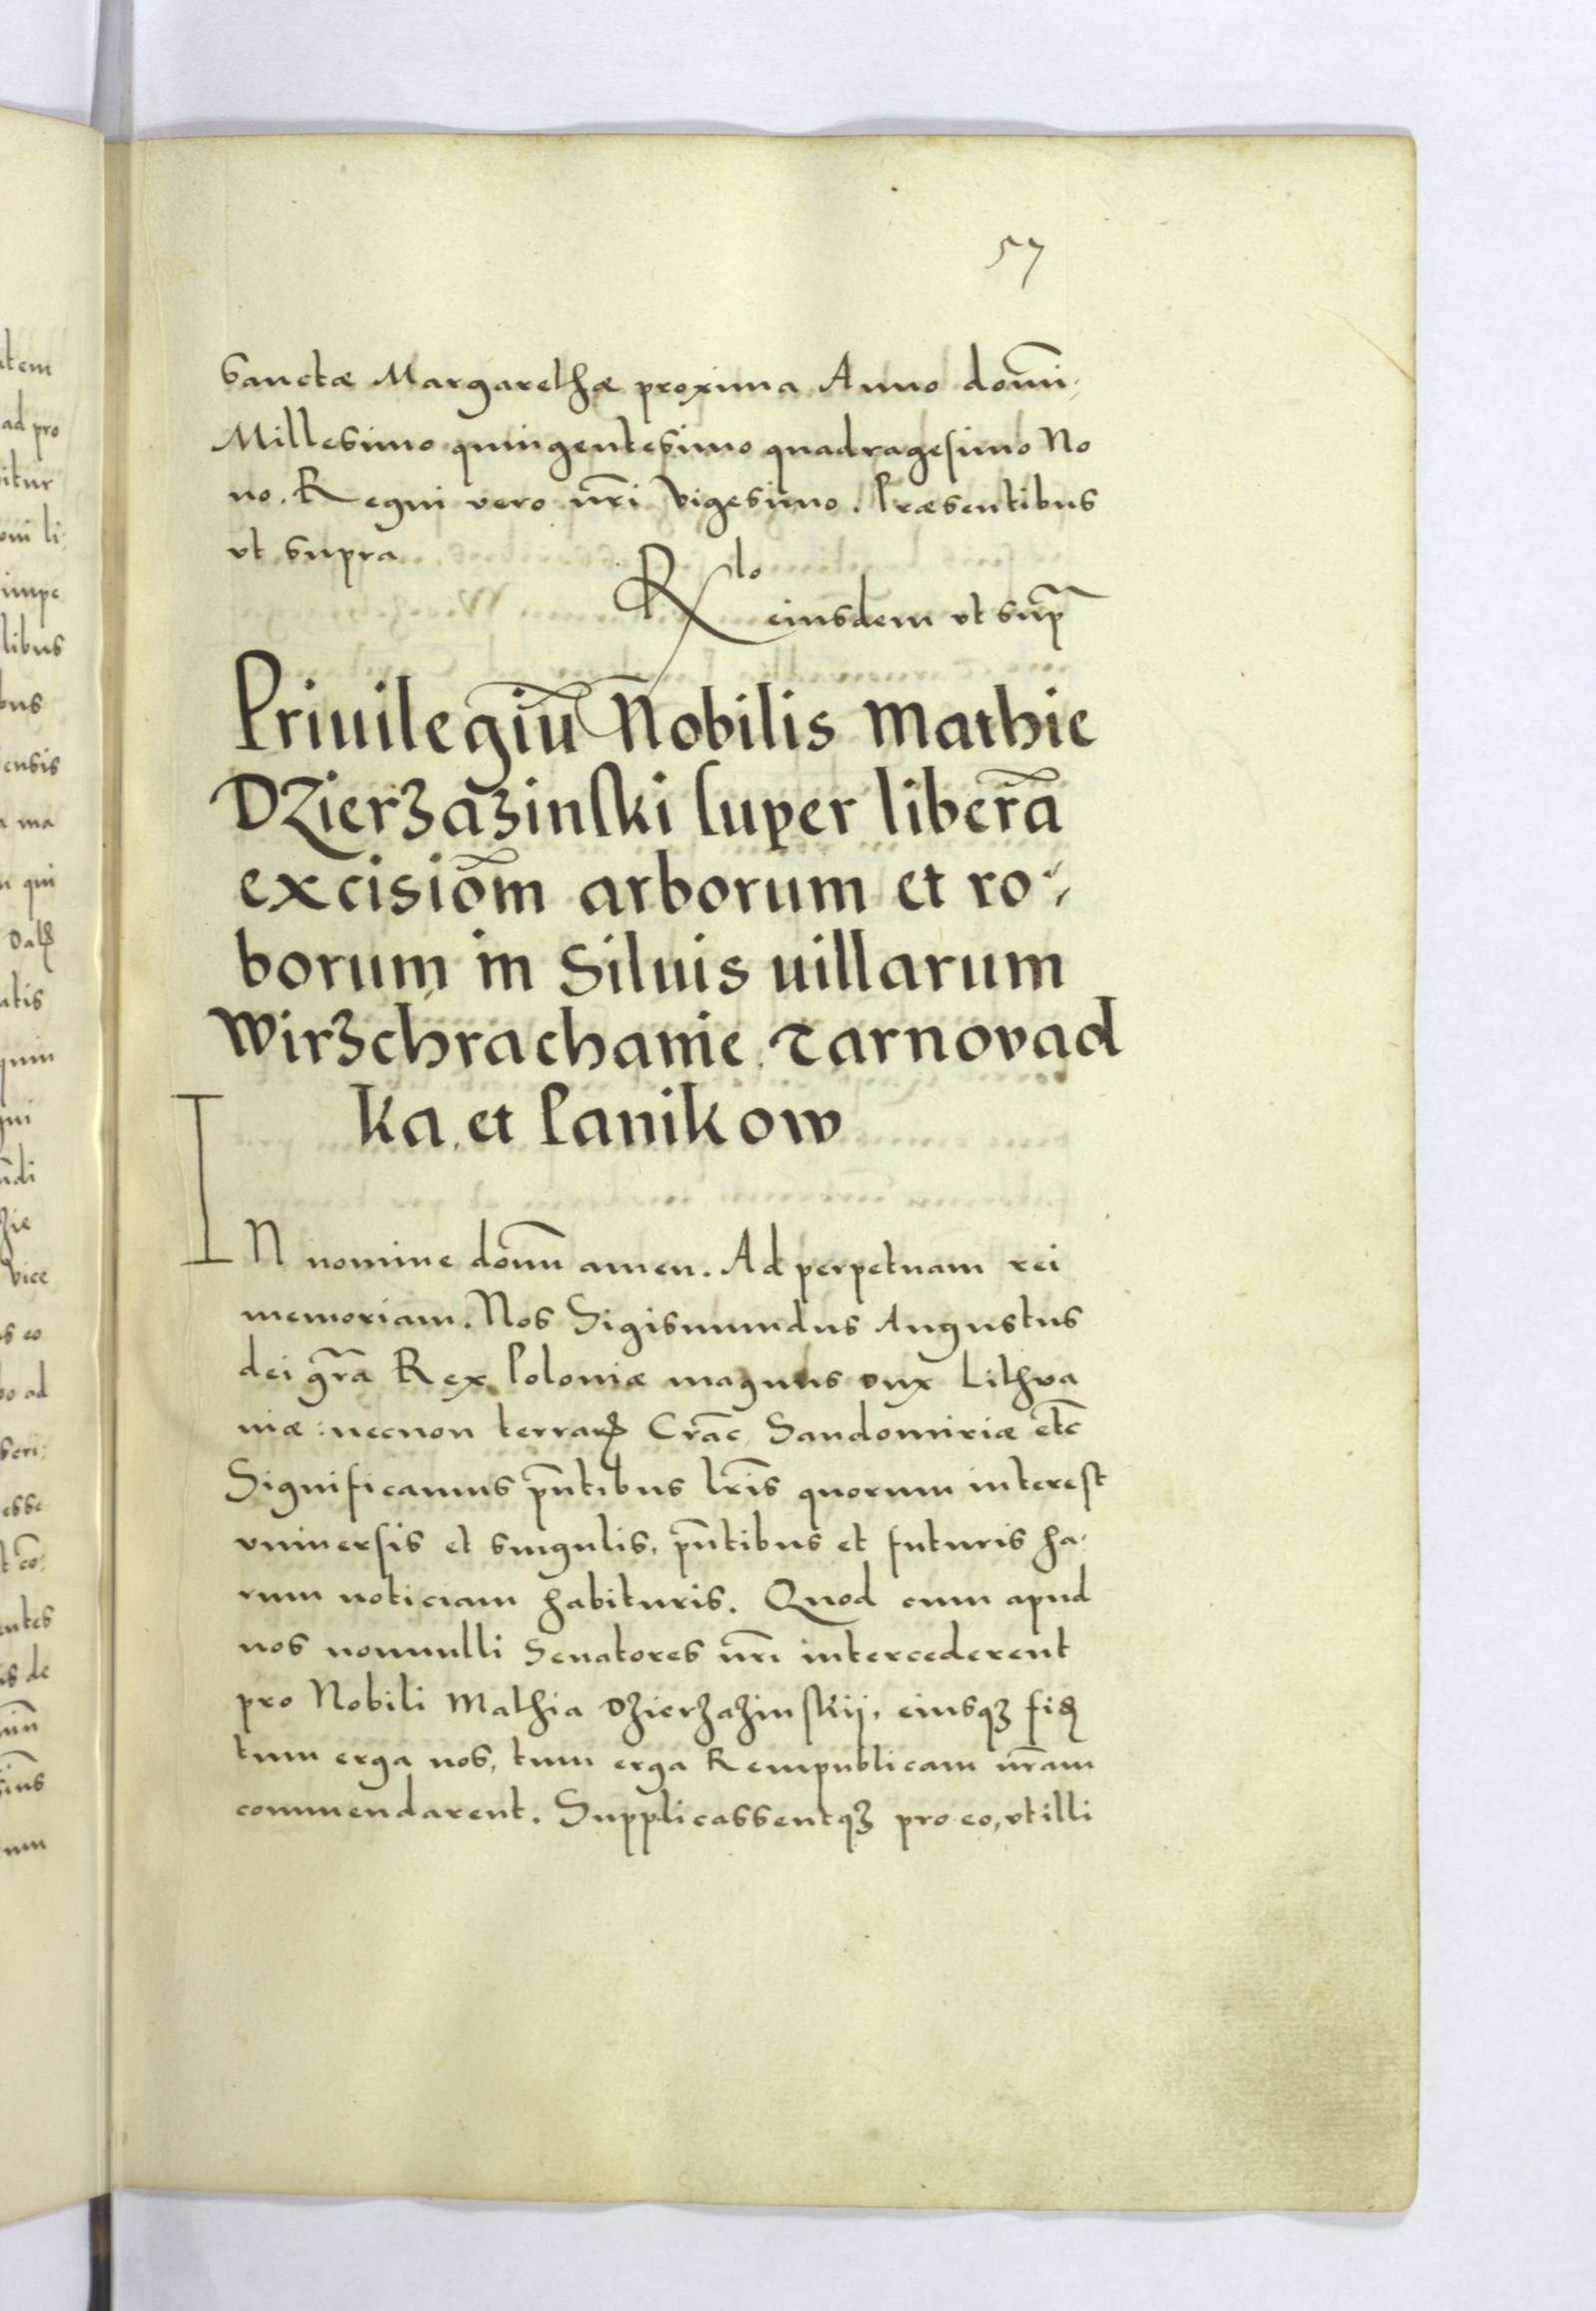 57
Sanctæ Margarethæ proxima Anno dom̄i,
Millesimo quingentesimo quadragesimo No
no. Regni vero nr̄i Vigesimo. Præsentibus
vt supra
R<sup>lo</sup> eiusdem vt sup̄
Priuilegiū Nobilis Mathie
DZierzazinski super liberā
excisiōm arborum et ro⸗
borum in Siluis uillarum
Wirzchrachanie Tarnovad
ka et Panikow
IN nomine domī amen. Ad perpetuam rei
memoriam. Nos Sigismundus Augustus
dei gr̄a Rex Poloniæ magnus dux Lithva
niæ: necnon terrarꝝ Crac̄ Sandomiriæ etc̄
Significamus pn̄tibus lr̄is quorum interest
vniuersis et singulis, pn̄tibus et futuris ha⸗
rum noticiam habituris. Quod cum apud
nos nonnulli Senatores nr̄i intercederent
pro Nobili Mathia Dzierzazinskij, eiusqȝ fidꝭ
tum erga nos, tum erga Rempublicam nr̄am
commendarent. Supplicassentqȝ pro eo, vt illi